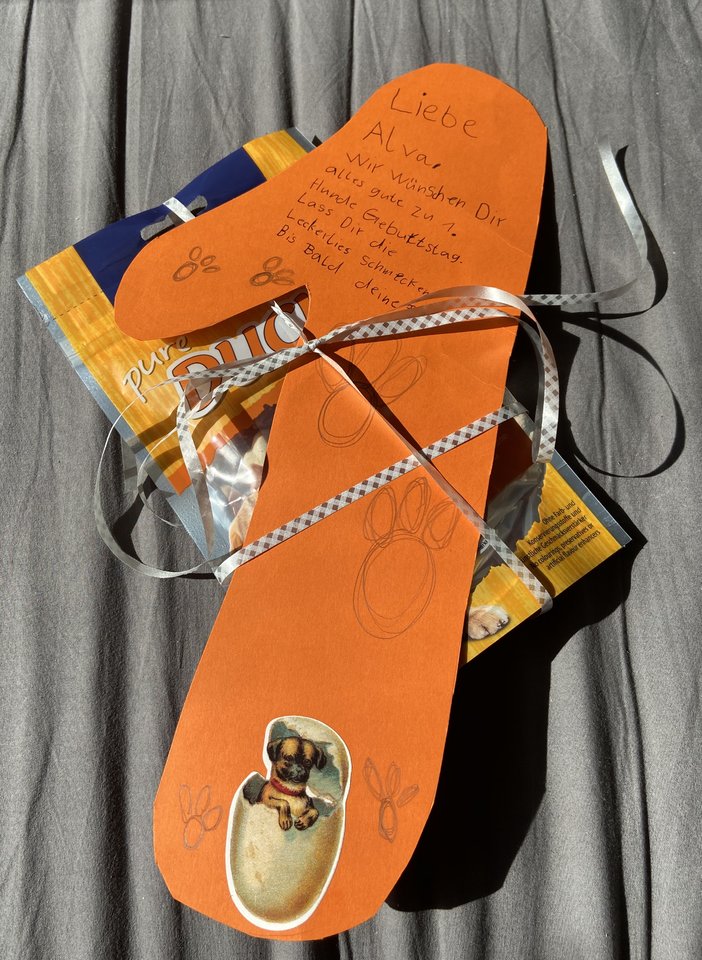 Liebe
Alva.
Wir Wünschen Dir
alles gute zu 1.
Hunde Geburtstag.
Lass Dir die
Leckerlies schmecken
Bis Bald deine
pure
DUC
Ohne Farb- und
Konservierungsstoffe und
Geschmacksverstärker
colourings, preservatives or
artificial flavour enhancers